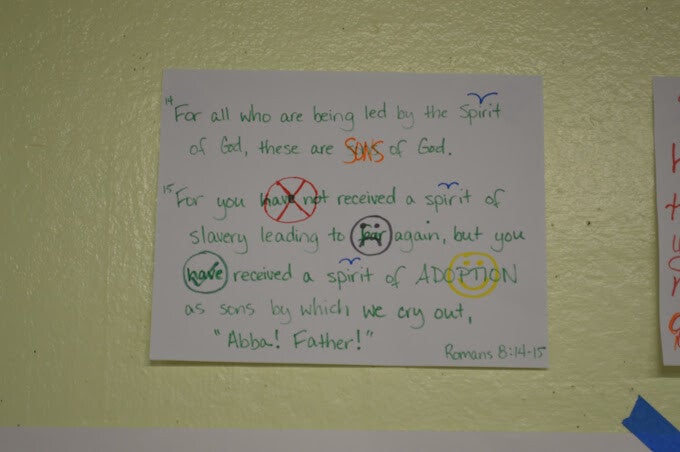 14 For all who are being led by the Spirit
of God, these are SONS of God.
15 For you have not received a spirit of
slavery leading to fear again, but you
have received a spirit of ADOPTION
as sons by which we cry out,
"Abba! Father!"
Romans 8:14-15